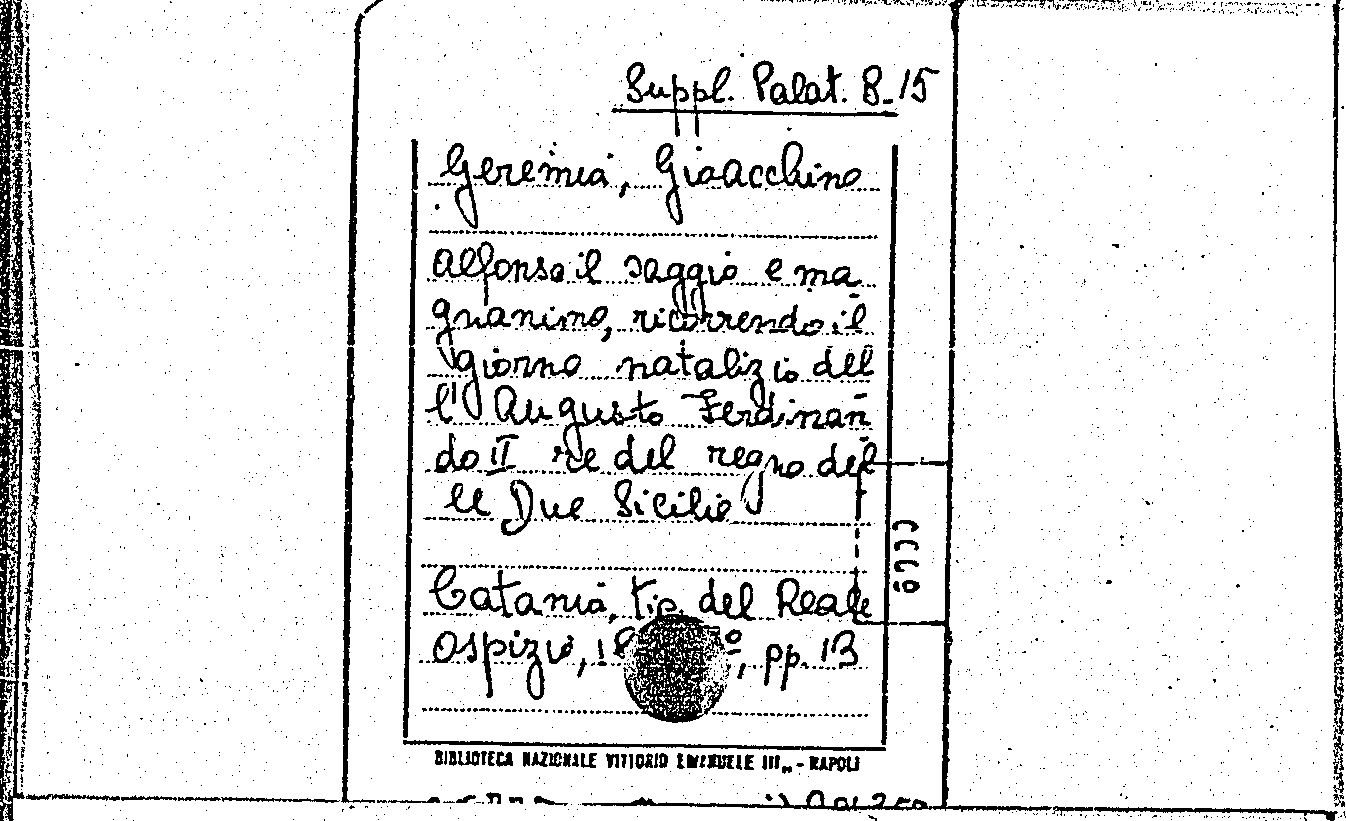 Suppl. Palat. B-15
Geremia, Gioacchino
Alfonso il saggio e ma
gnanimo, ricorrendo il
giorno natalizio del
l'Augusto Ferdinan
do II re del regno del
le Due Sicilie
Catania, tip. del Reale
Ospizio, pp. 13
BIBLIOTECA NAZIONALE VITTORIO EMANUELE III„ - NAPOLI